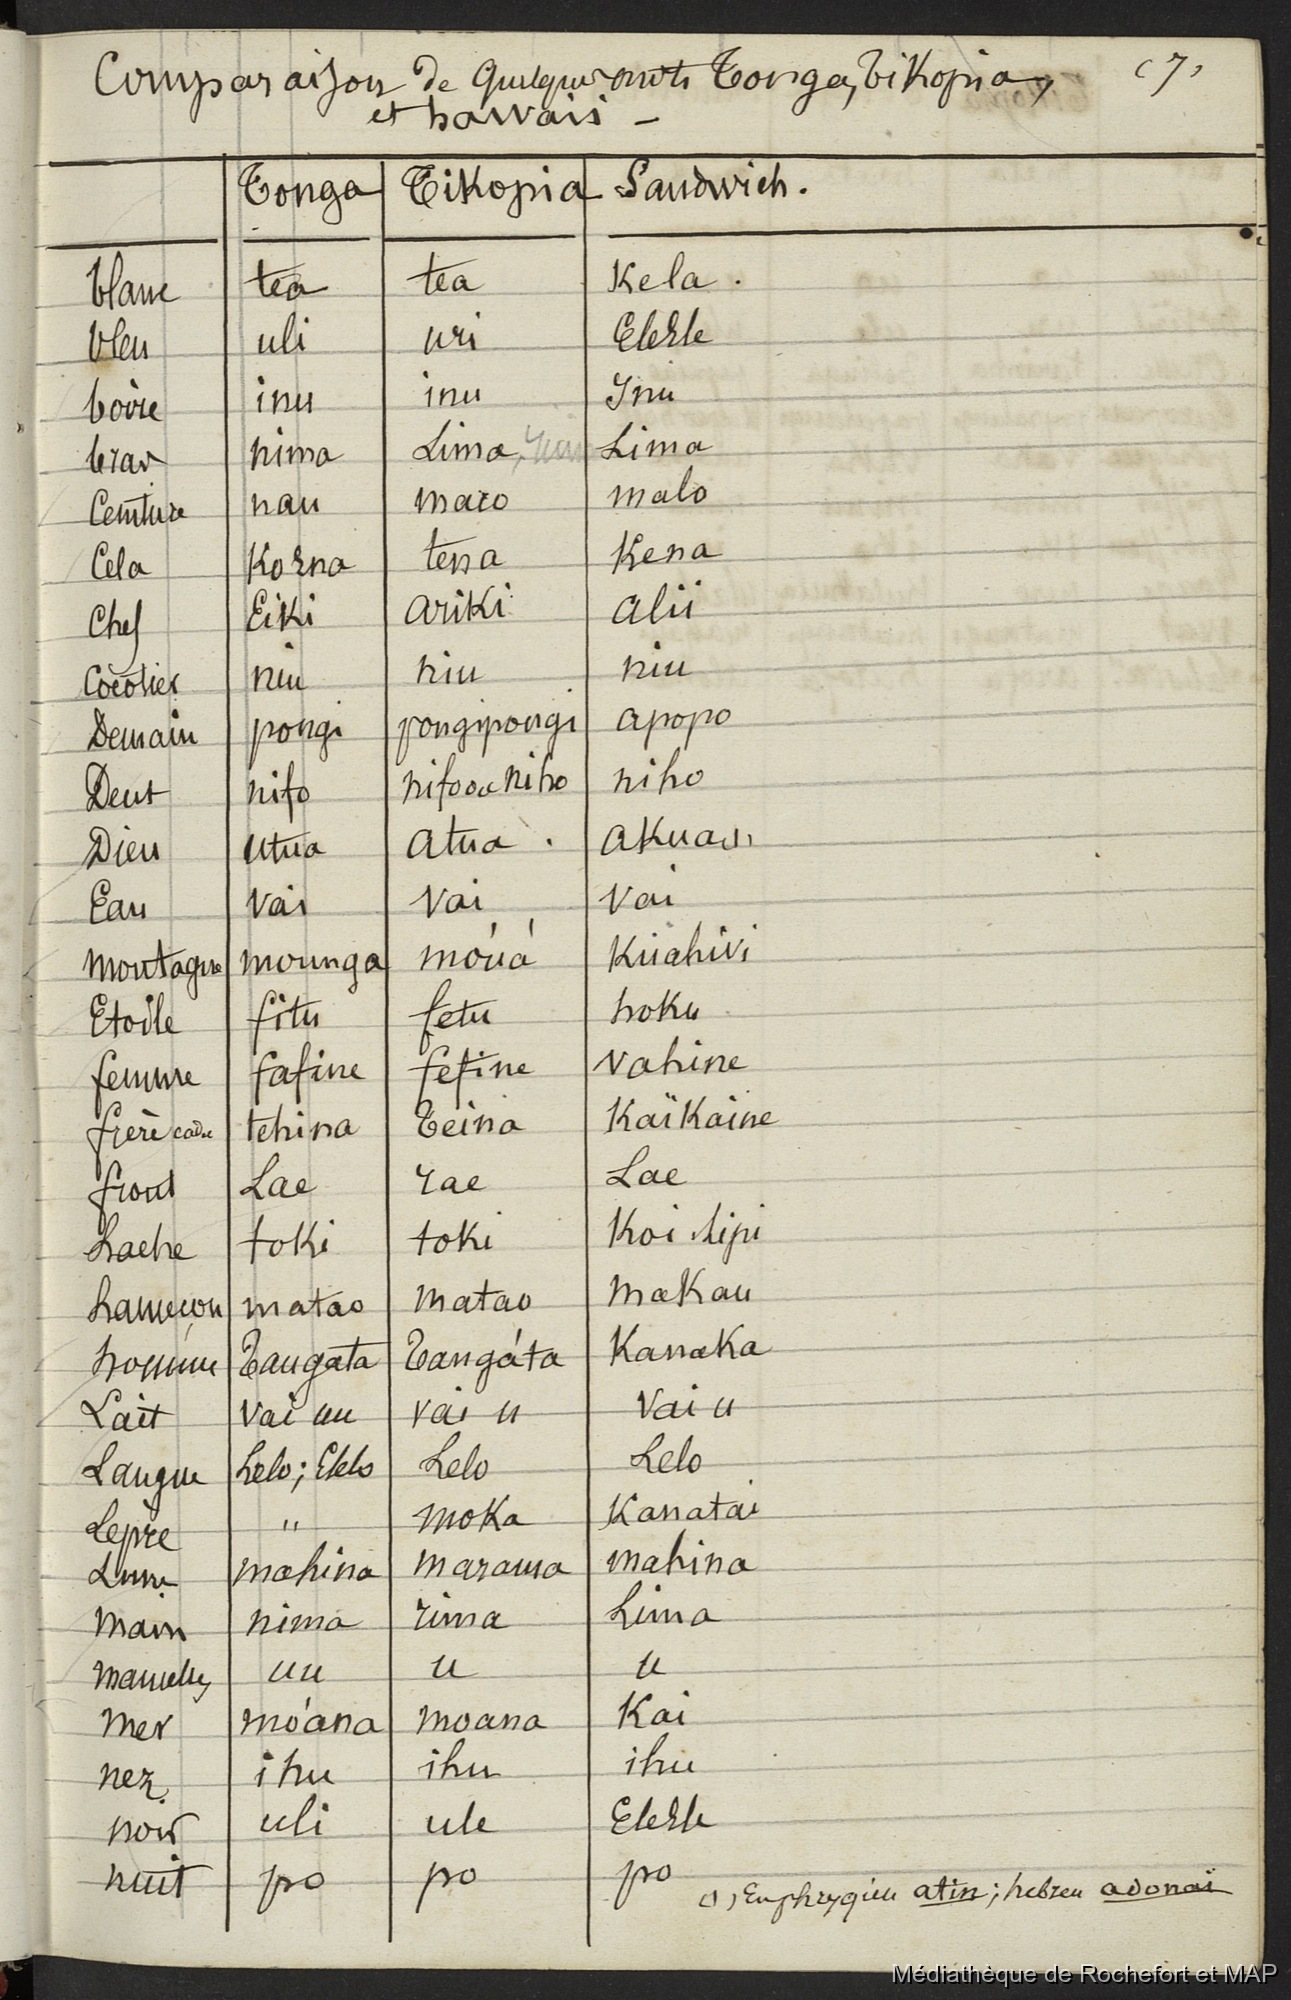 Comparaison de quelques mots Tonga, Tikopia, (7)
et hawaïs -
Tonga Tikopia Sandwich.
blanc tea tea Kela.
bleu uli uri Elekle
boire inu inu Ynu
bras nima Lima, Lima
Ceinture nau maro malo
Cela Koena tena Kena
Chef Eiki ariki alii
Cocotier niu niu niu
Demain pongi pongipongi apopo
Dent nifo nifo ou niho niho
Dieu utua atua. akua (1)
Eau vai vai vai
montagne mounga móúá Kuahivi
Etoile fitu fetu hoku
femme fafine fefine vahine
frère cadet tehina Teina Kaïkaine
front Lae rae Lae
hache toki toki Koi lipi
hameçon matao matao makau
homme Tangata Tangáta Kanaka
Lait vai uu vai u vai u
Langue Lelo; Elelo Lelo Lelo
Lèpre " moka Kanatai
Lune mahina marama mahina
main nima rima Lima
mamelles uu u u
mer móana moana Kai
nez ihu ihu ihu
noir uli ule Elekle
nuit po po po
(1) En phrygien atin; hébreu adonaï
Médiathèque de Rochefort et MAP